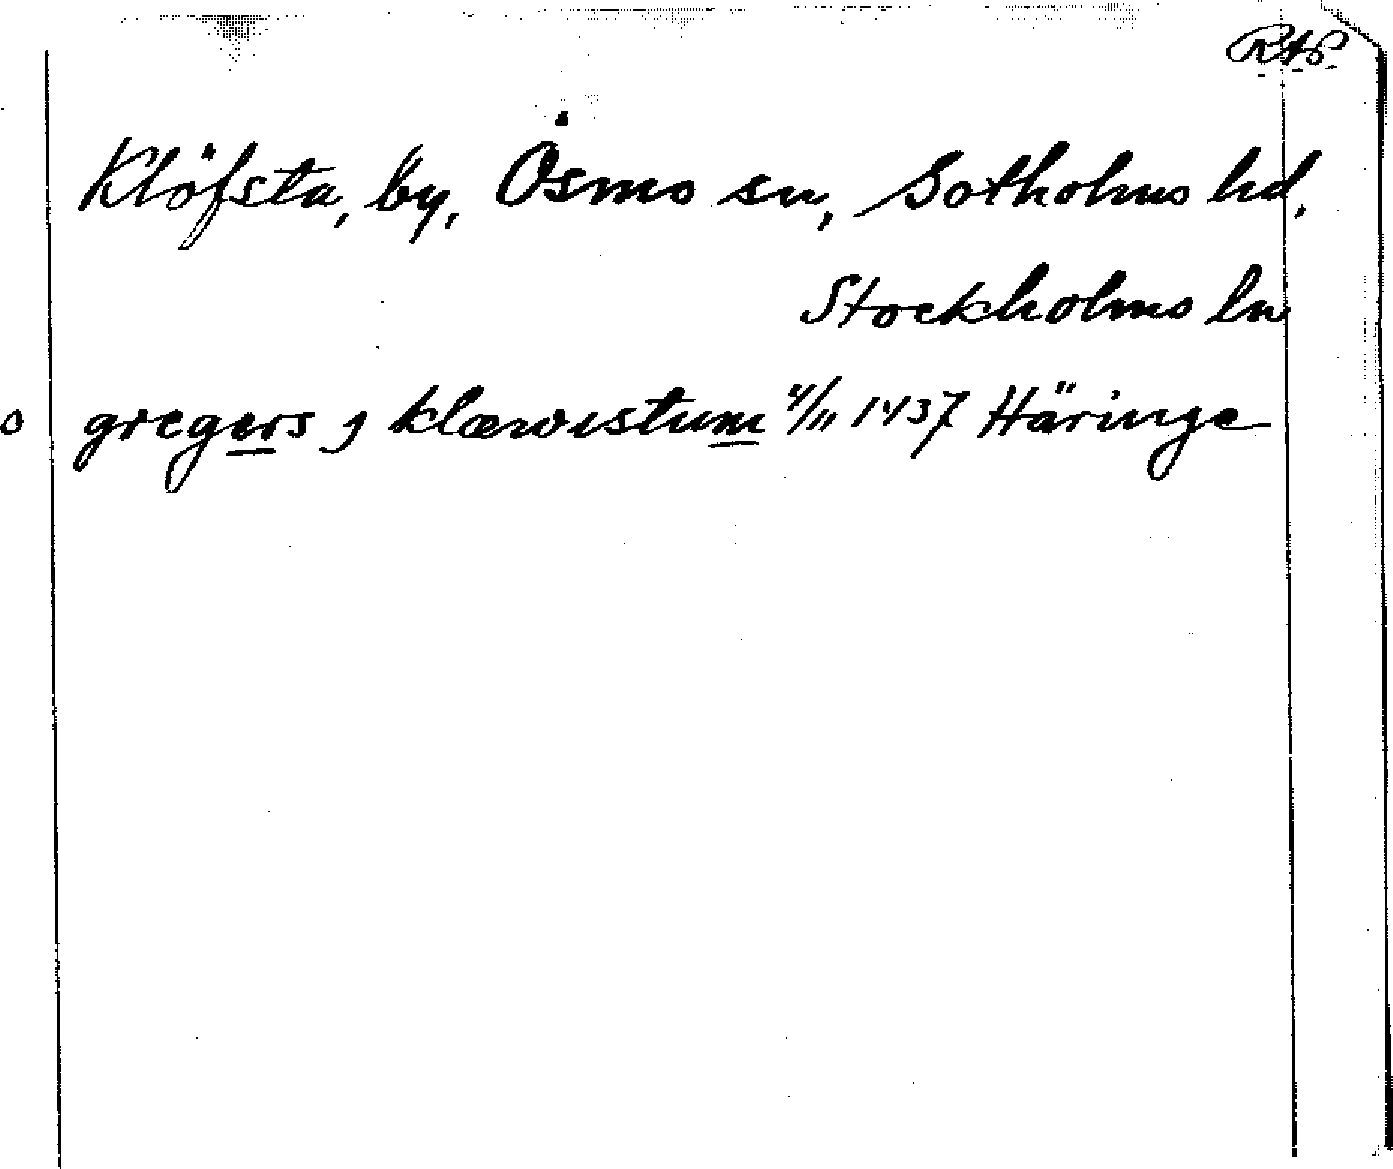 RAP.
Klöfsta, by, Ösmo sn, Sotholms hd,
Stockholms ln
o gregers j klæwistum 4/11 1437 Häringe